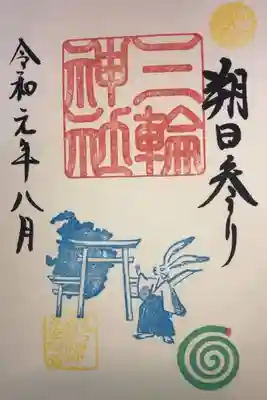 朔日参り
三輪
神社
令和元年八月